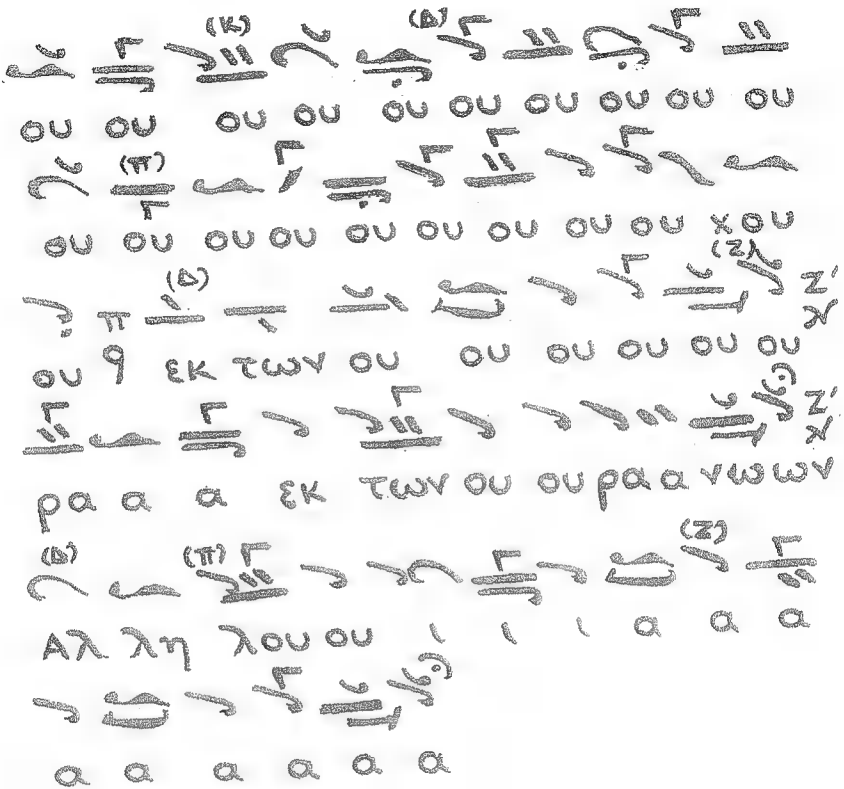 (Κ) (Δ)
ου ου ου ου ου ου ου ου ου ου
(π)
ου ου ου ου ου ου ου ου ου χου
(Δ) π (Ζ)
ου 9 εκ των ου ου ου ου ου ου
ρα α α εκ των ου ου ρα α νω ων
(Δ) (π) (Ζ)
Αλ λη λου ου ι ι ι α α α
α α α α α α